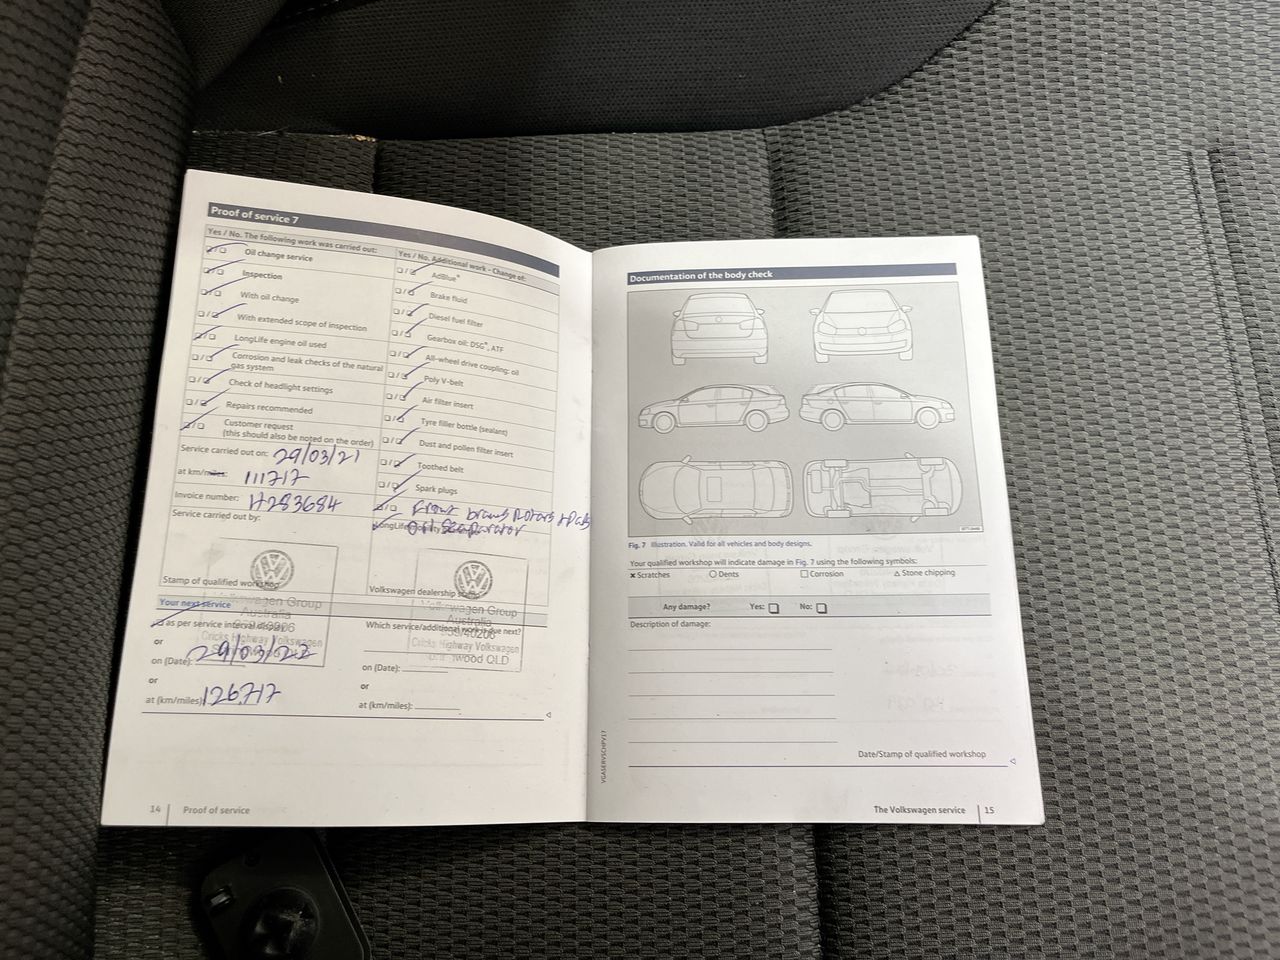 Proof of service 7
Yes / No. The following work was carried out:
Oil change service
Inspection
With oil change
With extended scope of inspection
LongLife engine oil used
Corrosion and leak checks of the natural
gas system
Check of headlight settings
Repairs recommended
Customer request
(this should also be noted on the order)
Service carried out on: 29/03/21
at km/miles: 111717
Invoice number: H283684
Service carried out by:
Stamp of qualified workshop
Volkswagen Group
Australia
Cricks Highway Volkswagen
Yes / No. Additional work - Change of:
AdBlue®
Brake fluid
Diesel fuel filter
Gearbox oil: DSG®, ATF
All-wheel drive coupling: oil
Poly V-belt
Air filter insert
Tyre filler bottle (sealant)
Dust and pollen filter insert
Toothed belt
Spark plugs
Front Rotors + Pads
oil separator
Volkswagen dealership stamp
Volkswagen Group
Australia
Cricks Highway Volkswagen
QLD
Your next service
as per service interval display
or
on (Date): 29/03/22
or
at (km/miles) 126717
Which service/additional work is due next?
on (Date):
or
at (km/miles):
14 Proof of service
Documentation of the body check
Fig. 7 Illustration. Valid for all vehicles and body designs.
Your qualified workshop will indicate damage in Fig. 7 using the following symbols:
x Scratches O Dents □ Corrosion △ Stone chipping
Any damage? Yes: No:
Description of damage:
VGASERVSCHPV17
Date/Stamp of qualified workshop
The Volkswagen service 15